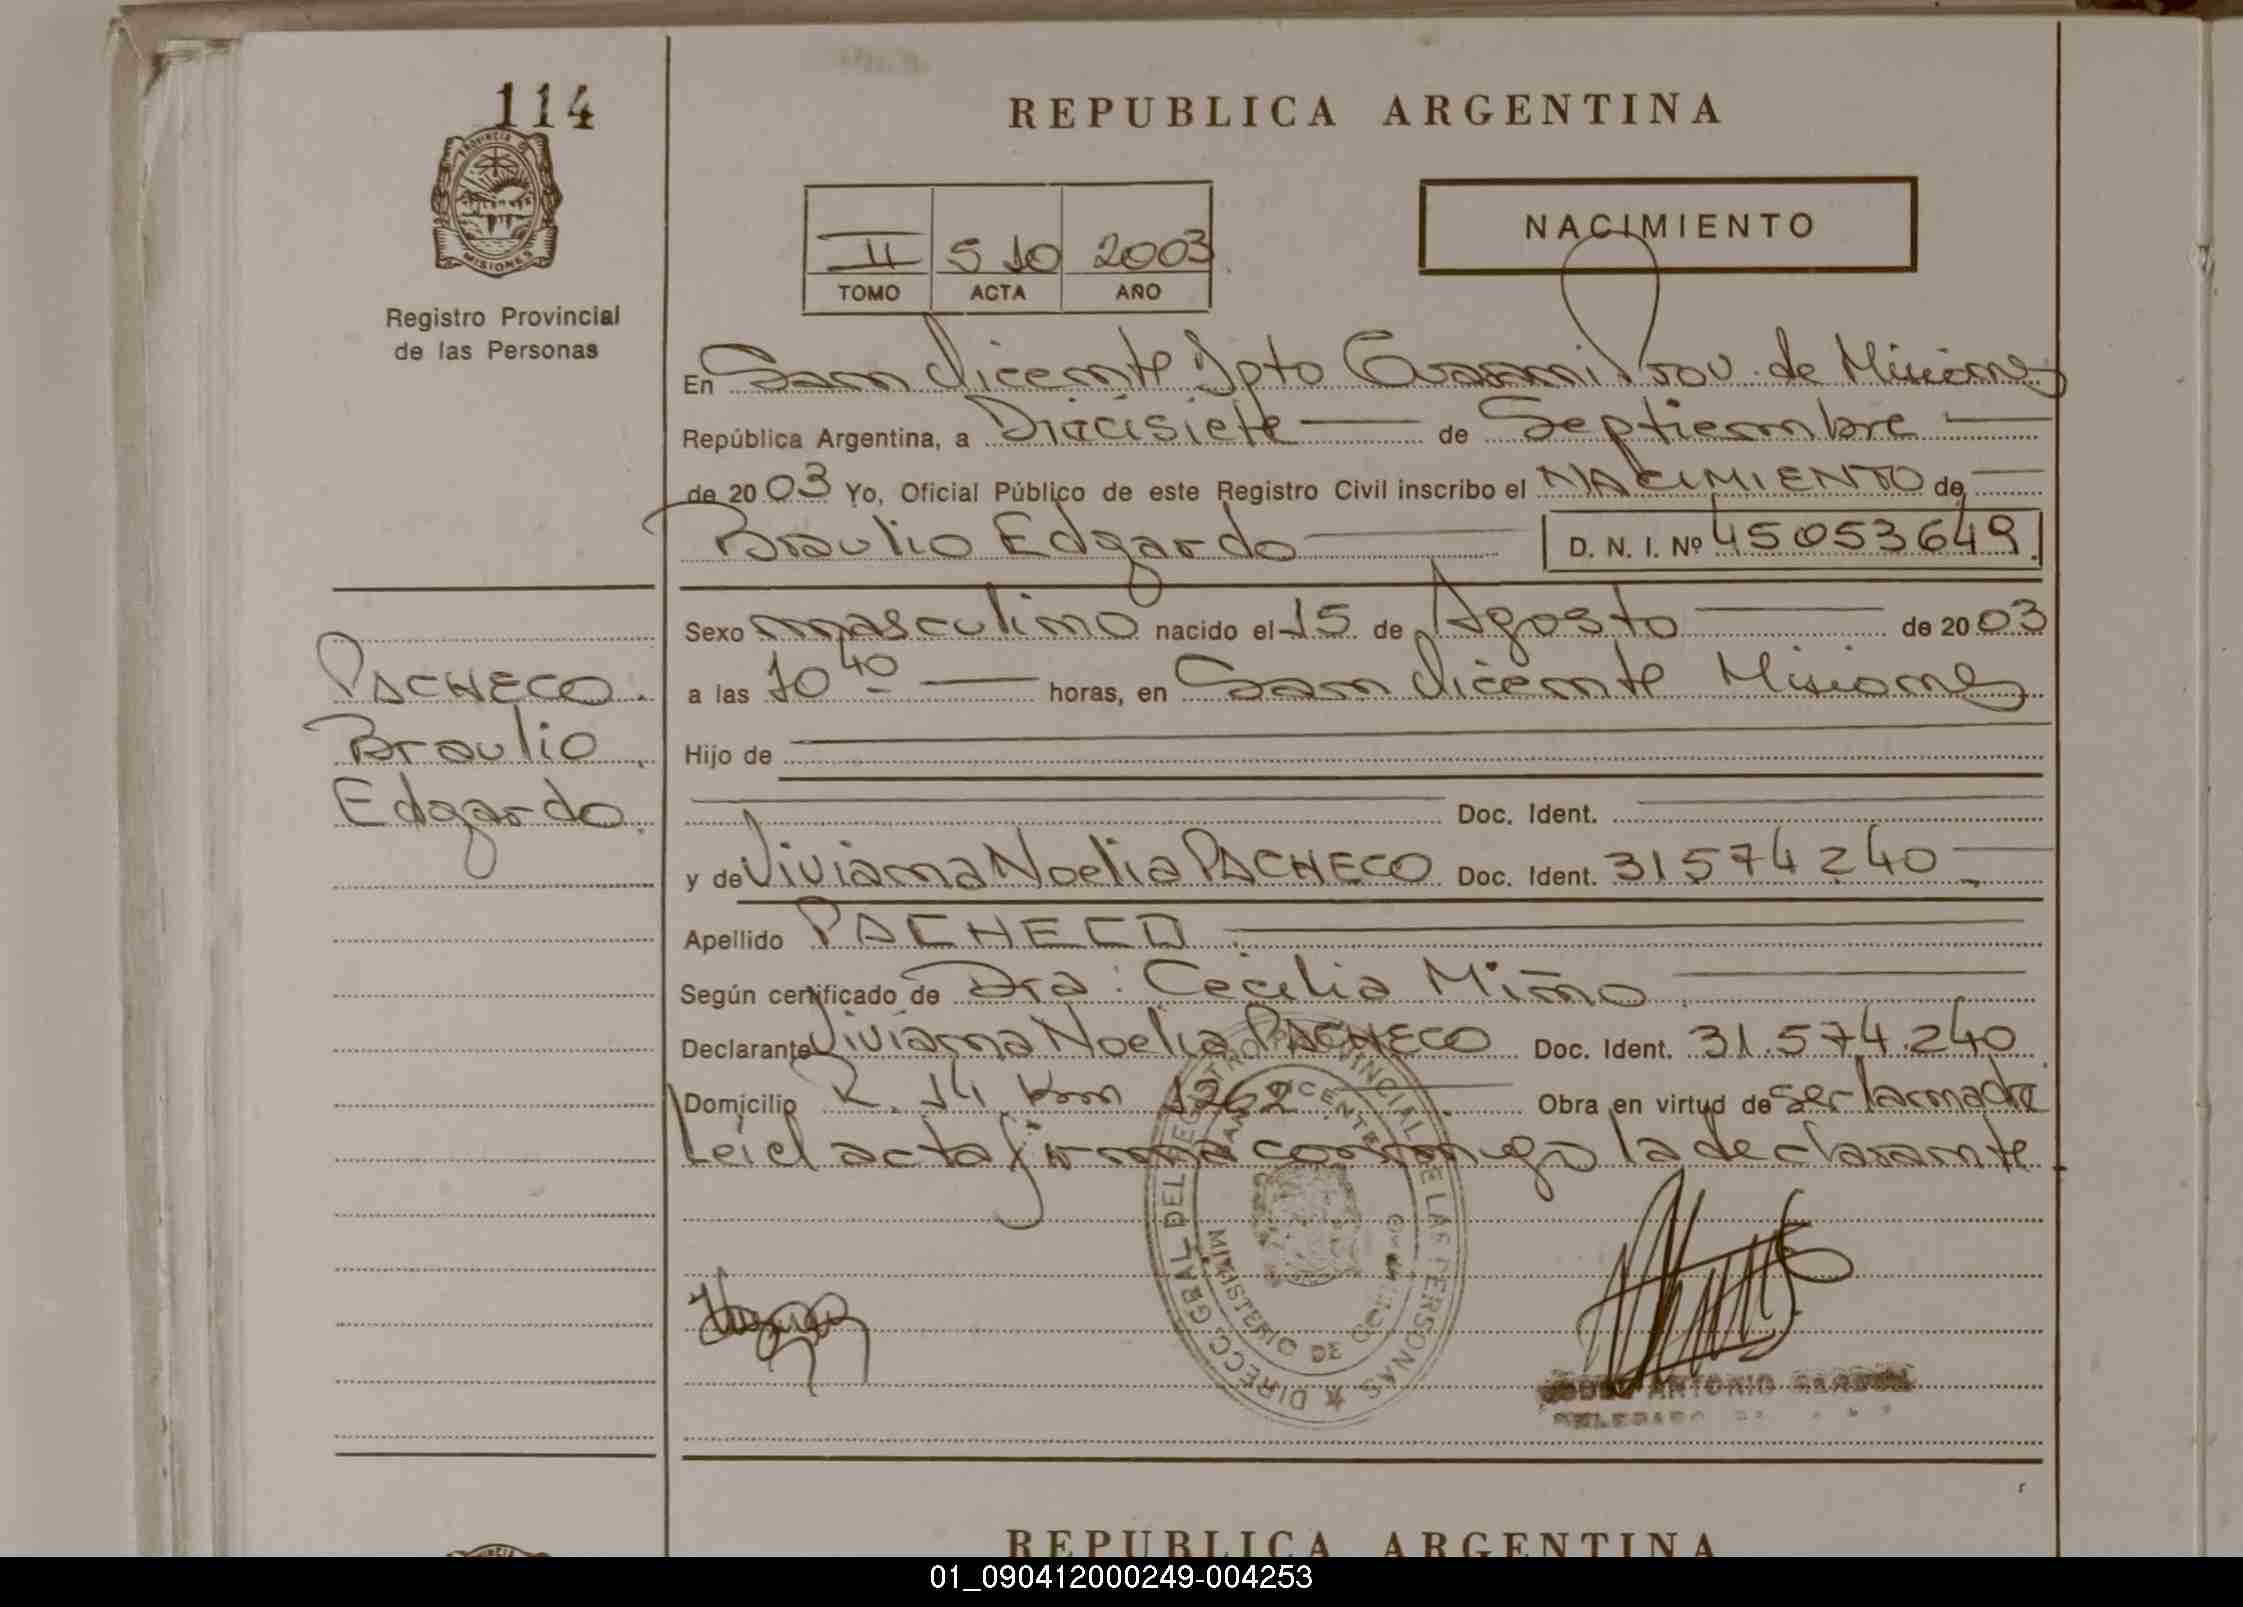 114
PROVINCIA DE
MISIONES
Registro Provincial
de las Personas
REPUBLICA ARGENTINA
II 510 2003
TOMO ACTA AÑO
NACIMIENTO
En San Vicente Dpto Guarani Prov. de Misiones
República Argentina, a Diecisiete de Septiembre
de 2003 Yo, Oficial Público de este Registro Civil inscribo el NACIMIENTO de
Braulio Edgardo D. N. I. Nº 45053649
Sexo masculino nacido el 15 de Agosto de 2003
a las 10 40 horas, en San Vicente Misiones
Hijo de
Doc. Ident.
y de Viviana Noelia PACHECO Doc. Ident. 31574240
Apellido PACHECO
Según certificado de Dra: Cecilia Miño
Declarante Viviana Noelia PACHECO Doc. Ident. 31.574.240
Domicilio R. 14 Km 1262 Obra en virtud de ser la madre
Leí el acta firma conmigo la declarante
PACHECO
Braulio
Edgardo
DIRECC. GRAL. DEL REGISTRO PROVINCIAL DE LAS PERSONAS
SAN VICENTE
MINISTERIO DE GOBIERNO
ANTONIO
DELEGADO
REPUBLICA ARGENTINA
01_090412000249-004253